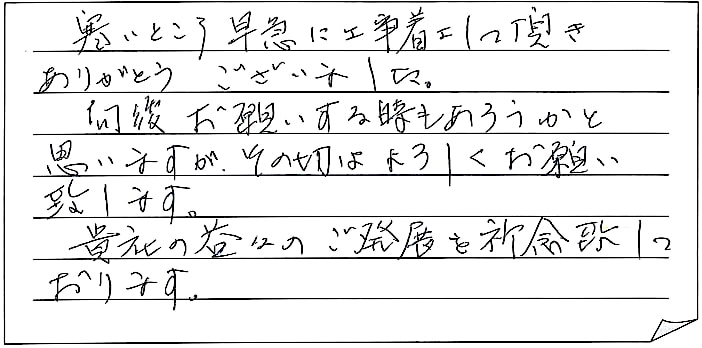 寒いところ早急に工事着工して頂き
ありがとうございました。
何後お願いする時もあろうかと
思いますが、その切はよろしくお願い
致します。
貴社の益々のご発展を祈念致して
おります。